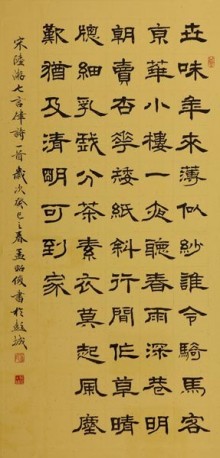 世味年來薄似紗誰令騎馬客
京華小樓一夜聽春雨深巷明
朝賣杏花矮紙斜行閒作草晴
窗細乳戲分茶素衣莫起風塵
歎猶及清明可到家
宋陸游七言律詩一首歲次癸巳之春孟昭俊書於彭城